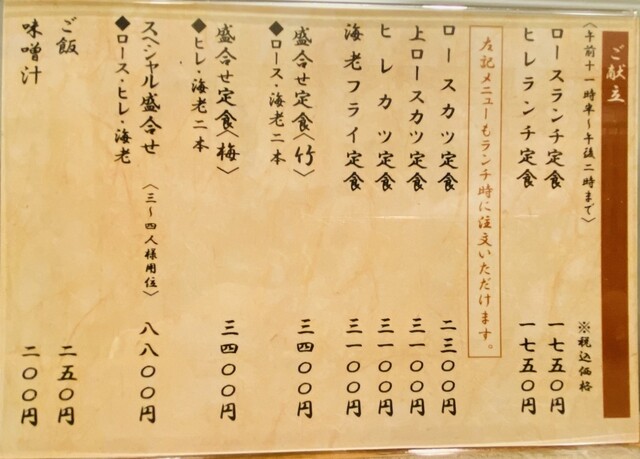 ご献立
〈午前十一時半〜午後二時まで〉 ※税込価格
ロースランチ定食 一七五〇円
ヒレランチ定食 一七五〇円
左記メニューもランチ時に注文いただけます。
ロースカツ定食 二三〇〇円
上ロースカツ定食 三一〇〇円
ヒレカツ定食 三一〇〇円
海老フライ定食 三一〇〇円
盛合せ定食〈竹〉 三四〇〇円
◆ロース・海老二本
盛合せ定食〈梅〉 三四〇〇円
◆ヒレ・海老二本
スペシャル盛合せ 〈三〜四人様用位〉 八八〇〇円
◆ロース・ヒレ・海老
ご飯 二五〇円
味噌汁 二〇〇円